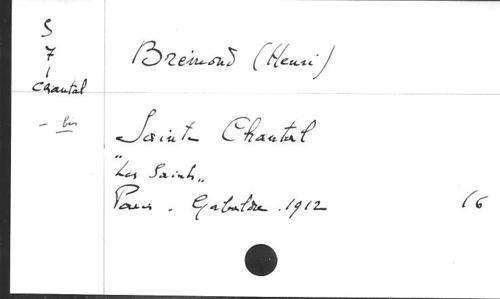 S
7
Chantal
- bis
Bremond (Henri)
Sainte Chantal
"Les Saints"
Paris. Gabalda. 1912 16